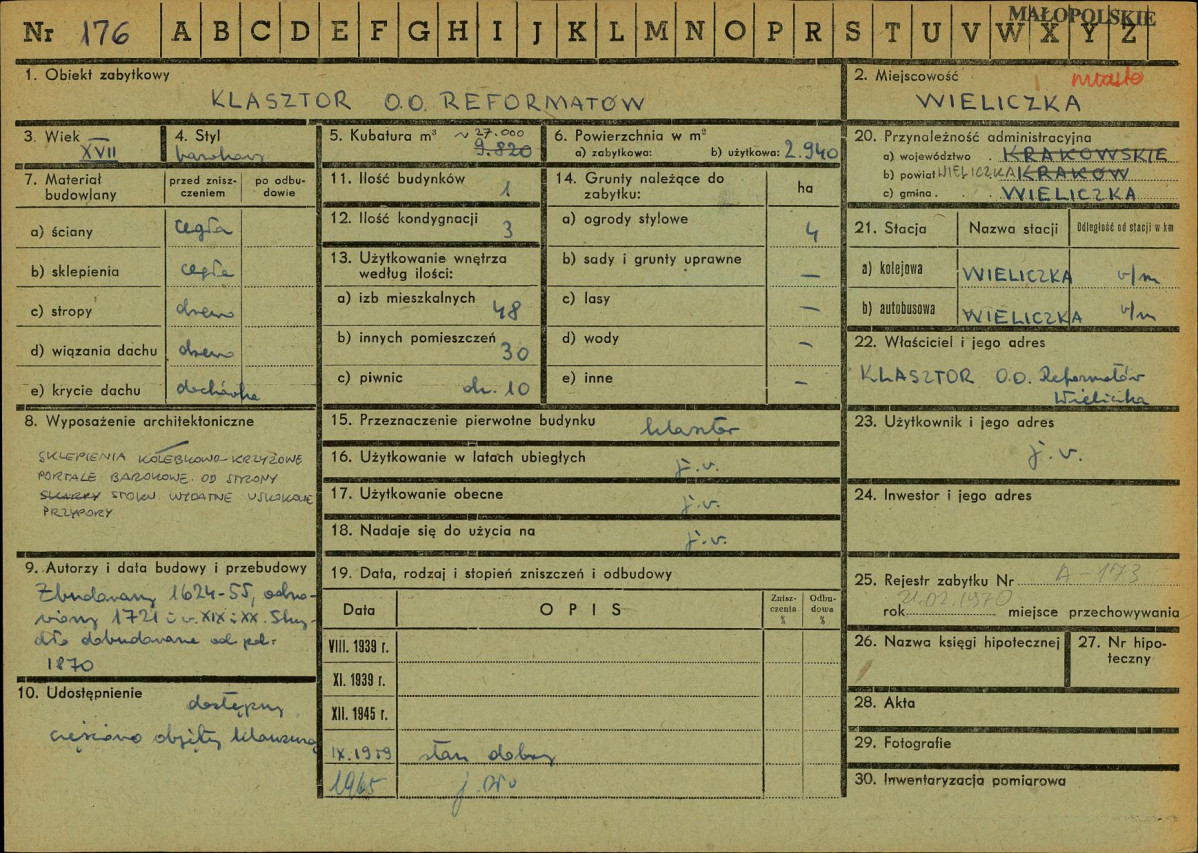 MAŁOPOLSKIE
Nr 176 A B C D E F G H I J K L M N O P R S T U V W X Y Z
1. Obiekt zabytkowy
KLASZTOR O.O. REFORMATÓW
2. Miejscowość
miasto
WIELICZKA
3. Wiek
XVII
4. Styl
barokowy
5. Kubatura m³ ~ 27.000
9.820
6. Powierzchnia w m²
a) zabytkowa: b) użytkowa: 2.940
20. Przynależność administracyjna
a) województwo . KRAKOWSKIE
b) powiat WIELICZKA KRAKÓW
c) gmina . WIELICZKA
7. Materiał budowlany
przed zniszczeniem
po odbudowie
a) ściany cegła
b) sklepienia cegła
c) stropy drewno
d) wiązania dachu drewno
e) krycie dachu dachówka
11. Ilość budynków 1
12. Ilość kondygnacji 3
13. Użytkowanie wnętrza
według ilości:
a) izb mieszkalnych 48
b) innych pomieszczeń 30
c) piwnic ok. 10
14. Grunty należące do
zabytku: ha
a) ogrody stylowe 4
b) sady i grunty uprawne —
c) lasy —
d) wody —
e) inne —
21. Stacja Nazwa stacji Odległość od stacji w km
a) kolejowa WIELICZKA v/m
b) autobusowa WIELICZKA v/m
22. Właściciel i jego adres
KLASZTOR O.O. Reformatów
Wieliczka
8. Wyposażenie architektoniczne
SKLEPIENIA KOLEBKOWO-KRZYŻOWE
PORTALE BAROKOWE. OD STRONY
SKARPY STOKU WYDATNE USKOKOWE
PRZYPORY
15. Przeznaczenie pierwotne budynku klasztor
16. Użytkowanie w latach ubiegłych j.w.
17. Użytkowanie obecne j.w.
18. Nadaje się do użycia na j.w.
23. Użytkownik i jego adres
j.w.
24. Inwestor i jego adres
9. Autorzy i data budowy i przebudowy
Zbudowany 1624-55, odno-
wiony 1721 i w. XIX i XX. Skrzy-
dło dobudowane od płd.
1870
19. Data, rodzaj i stopień zniszczeń i odbudowy
Data OPIS Zniszczenia % Odbudowa %
VIII. 1939 r.
XI. 1939 r.
XII. 1945 r.
IX.1959 stan dobry
1965 j. w.
25. Rejestr zabytku Nr A-173
21.02.1970
rok miejsce przechowywania
26. Nazwa księgi hipotecznej
27. Nr hipoteczny
28. Akta
29. Fotografie
30. Inwentaryzacja pomiarowa
10. Udostępnienie
dostępny
częściowo objęty klauzurą